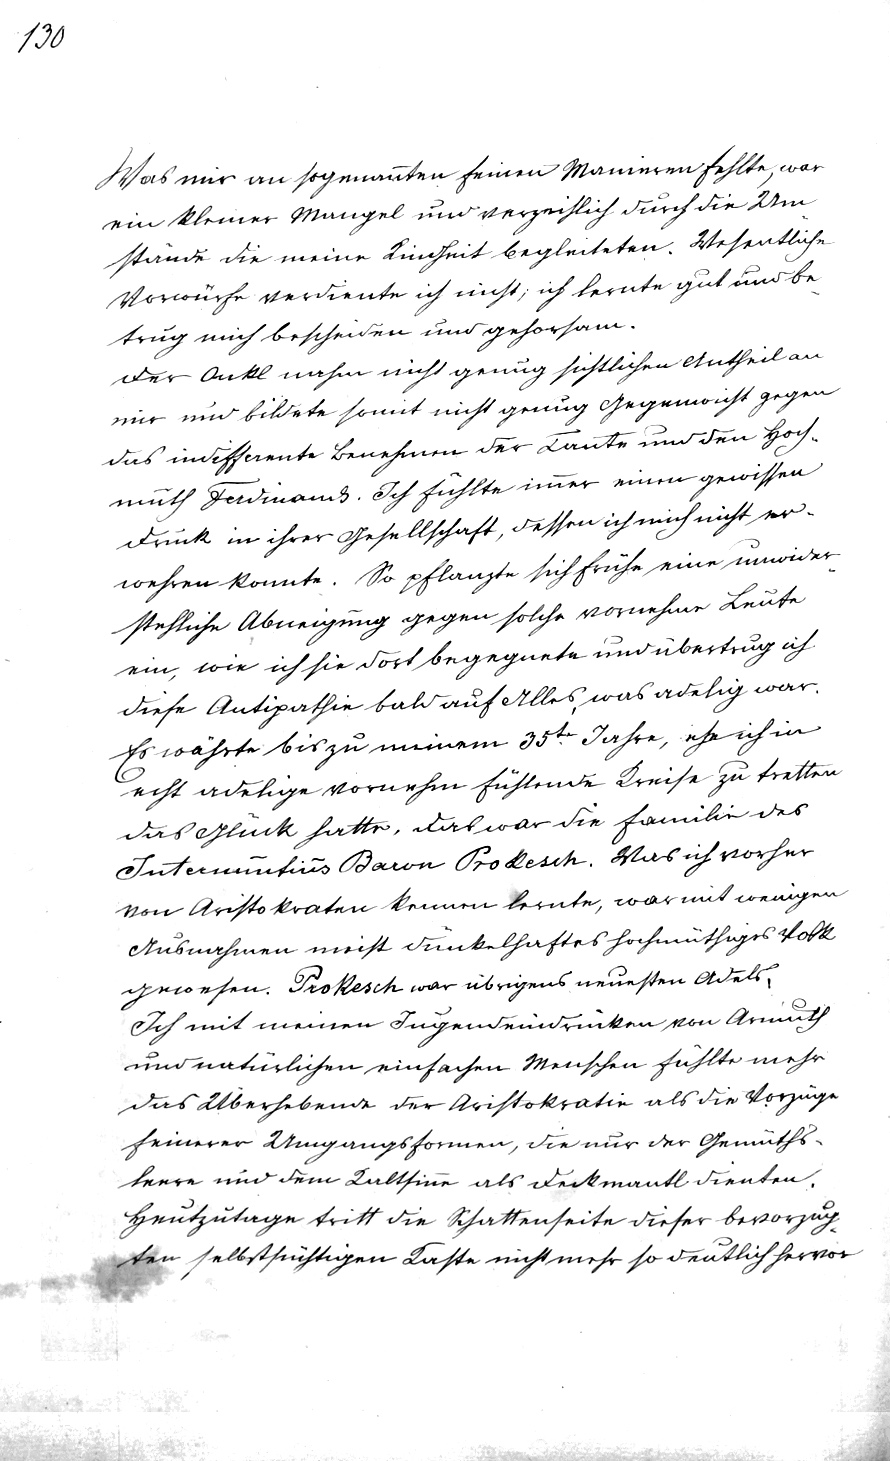 130
Was mir an sogenan̄ten feinen Manieren fehlte, war
ein kleiner Mangel und verzeihlich durch die Um
stände die meine Kindheit begleiteten. Wesentliche
Vorwürfe verdiente ich nicht; ich lernte gut und be-
trug mich bescheiden und gehorsam.
Der Onkl nahm nicht genug sichtlichen Antheil an
mir und bildete somit nicht genug Gegenwicht gegen
das indifferente Benehmen der Tante und den Hoch-
muth Ferdinands. Ich fühlte im̄er einen gewissen
Druck in ihrer Gesellschaft, dessen ich mich nicht er-
wehren konnte. So pflanzte sich frühe eine unwider-
stehliche Abneigung gegen solche vornehme Leute
ein, wie ich sie dort begegnete und übertrug ich
diese Antipathie bald auf Alles, was adelig war.
Es währte bis zu meinem 35te Jahre, ehe ich in
echt adelige vornehm fühlende Kreise zu tretten
das Glück hatte. Das war die Familie des
Internuntius Baron Prokesch. Was ich vorher
von Aristokraten kennen lernte, war mit wenigen
Ausnahmen meist dünkelhaftes hochmüthiges Volk
gewesen. Prokesch war übrigens neuesten Adels.
Ich mit meinen Jugendeindrücken von Armuth
und natürlichen einfachen Menschen fühlte mehr
das Überhebende der Aristokratie als die Vorzüge
feinerer Umgangsformen, die nur der Gemüths-
leere und dem Kaltsin̄e als Deckmantl dienten.
Heutzutage tritt die Schattenseite dieser bevorzug-
ten selbstsüchtigen Kaste nicht mehr so deutlich hervor